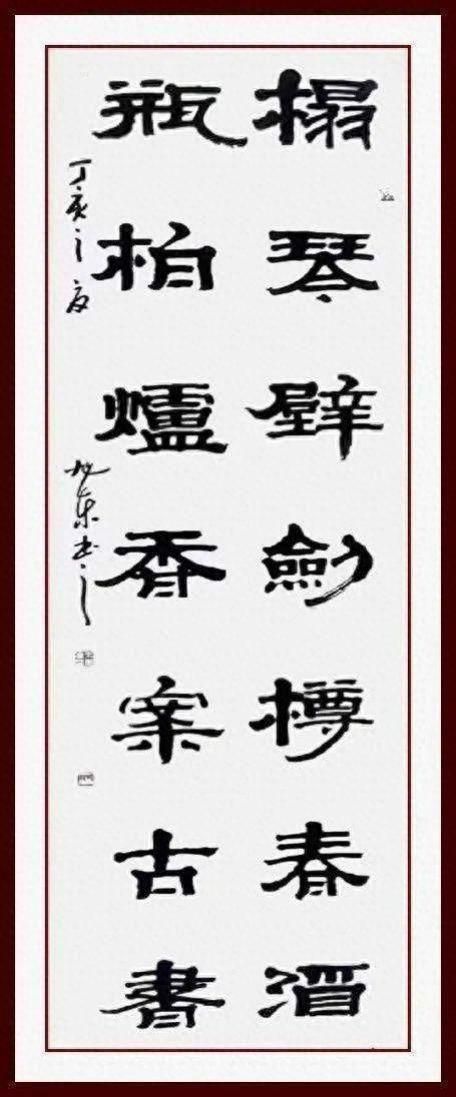 榻琴壁劍樽春酒
瓶柏爐香案古書
丁亥之夏
旭东书之